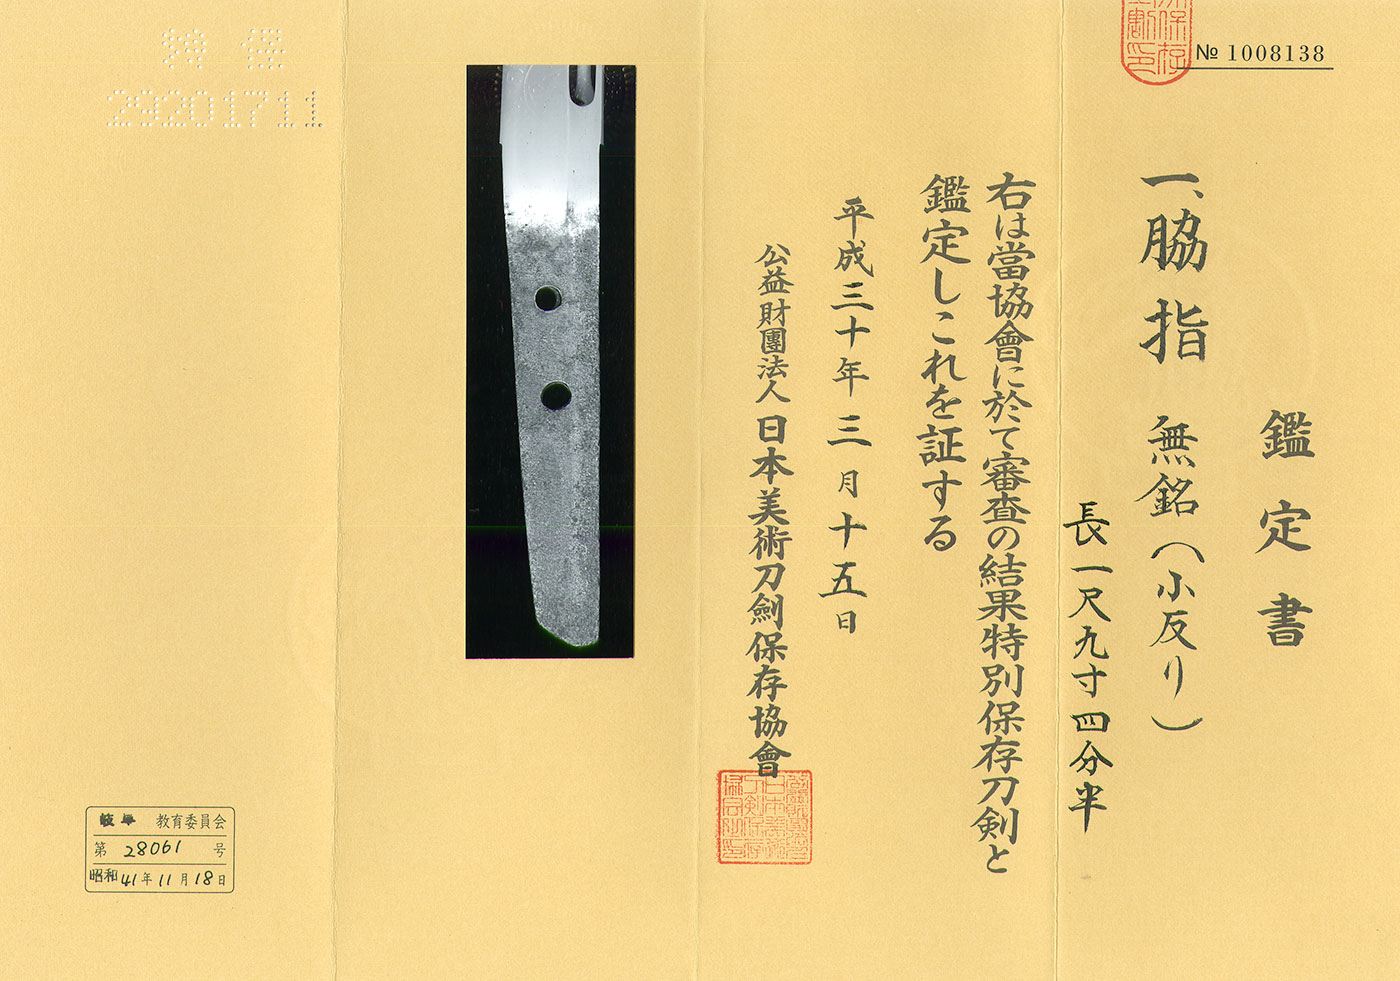 № 1008138
鑑定書
一、脇指 無銘(小反り)
長一尺九寸四分半
右は當協會に於て審査の結果特別保存刀剣と
鑑定しこれを証する
平成三十年三月十五日
公益財團法人日本美術刀劍保存協會
特保
29201711
岐阜 教育委員会
第 28061 号
昭和41年11月18日